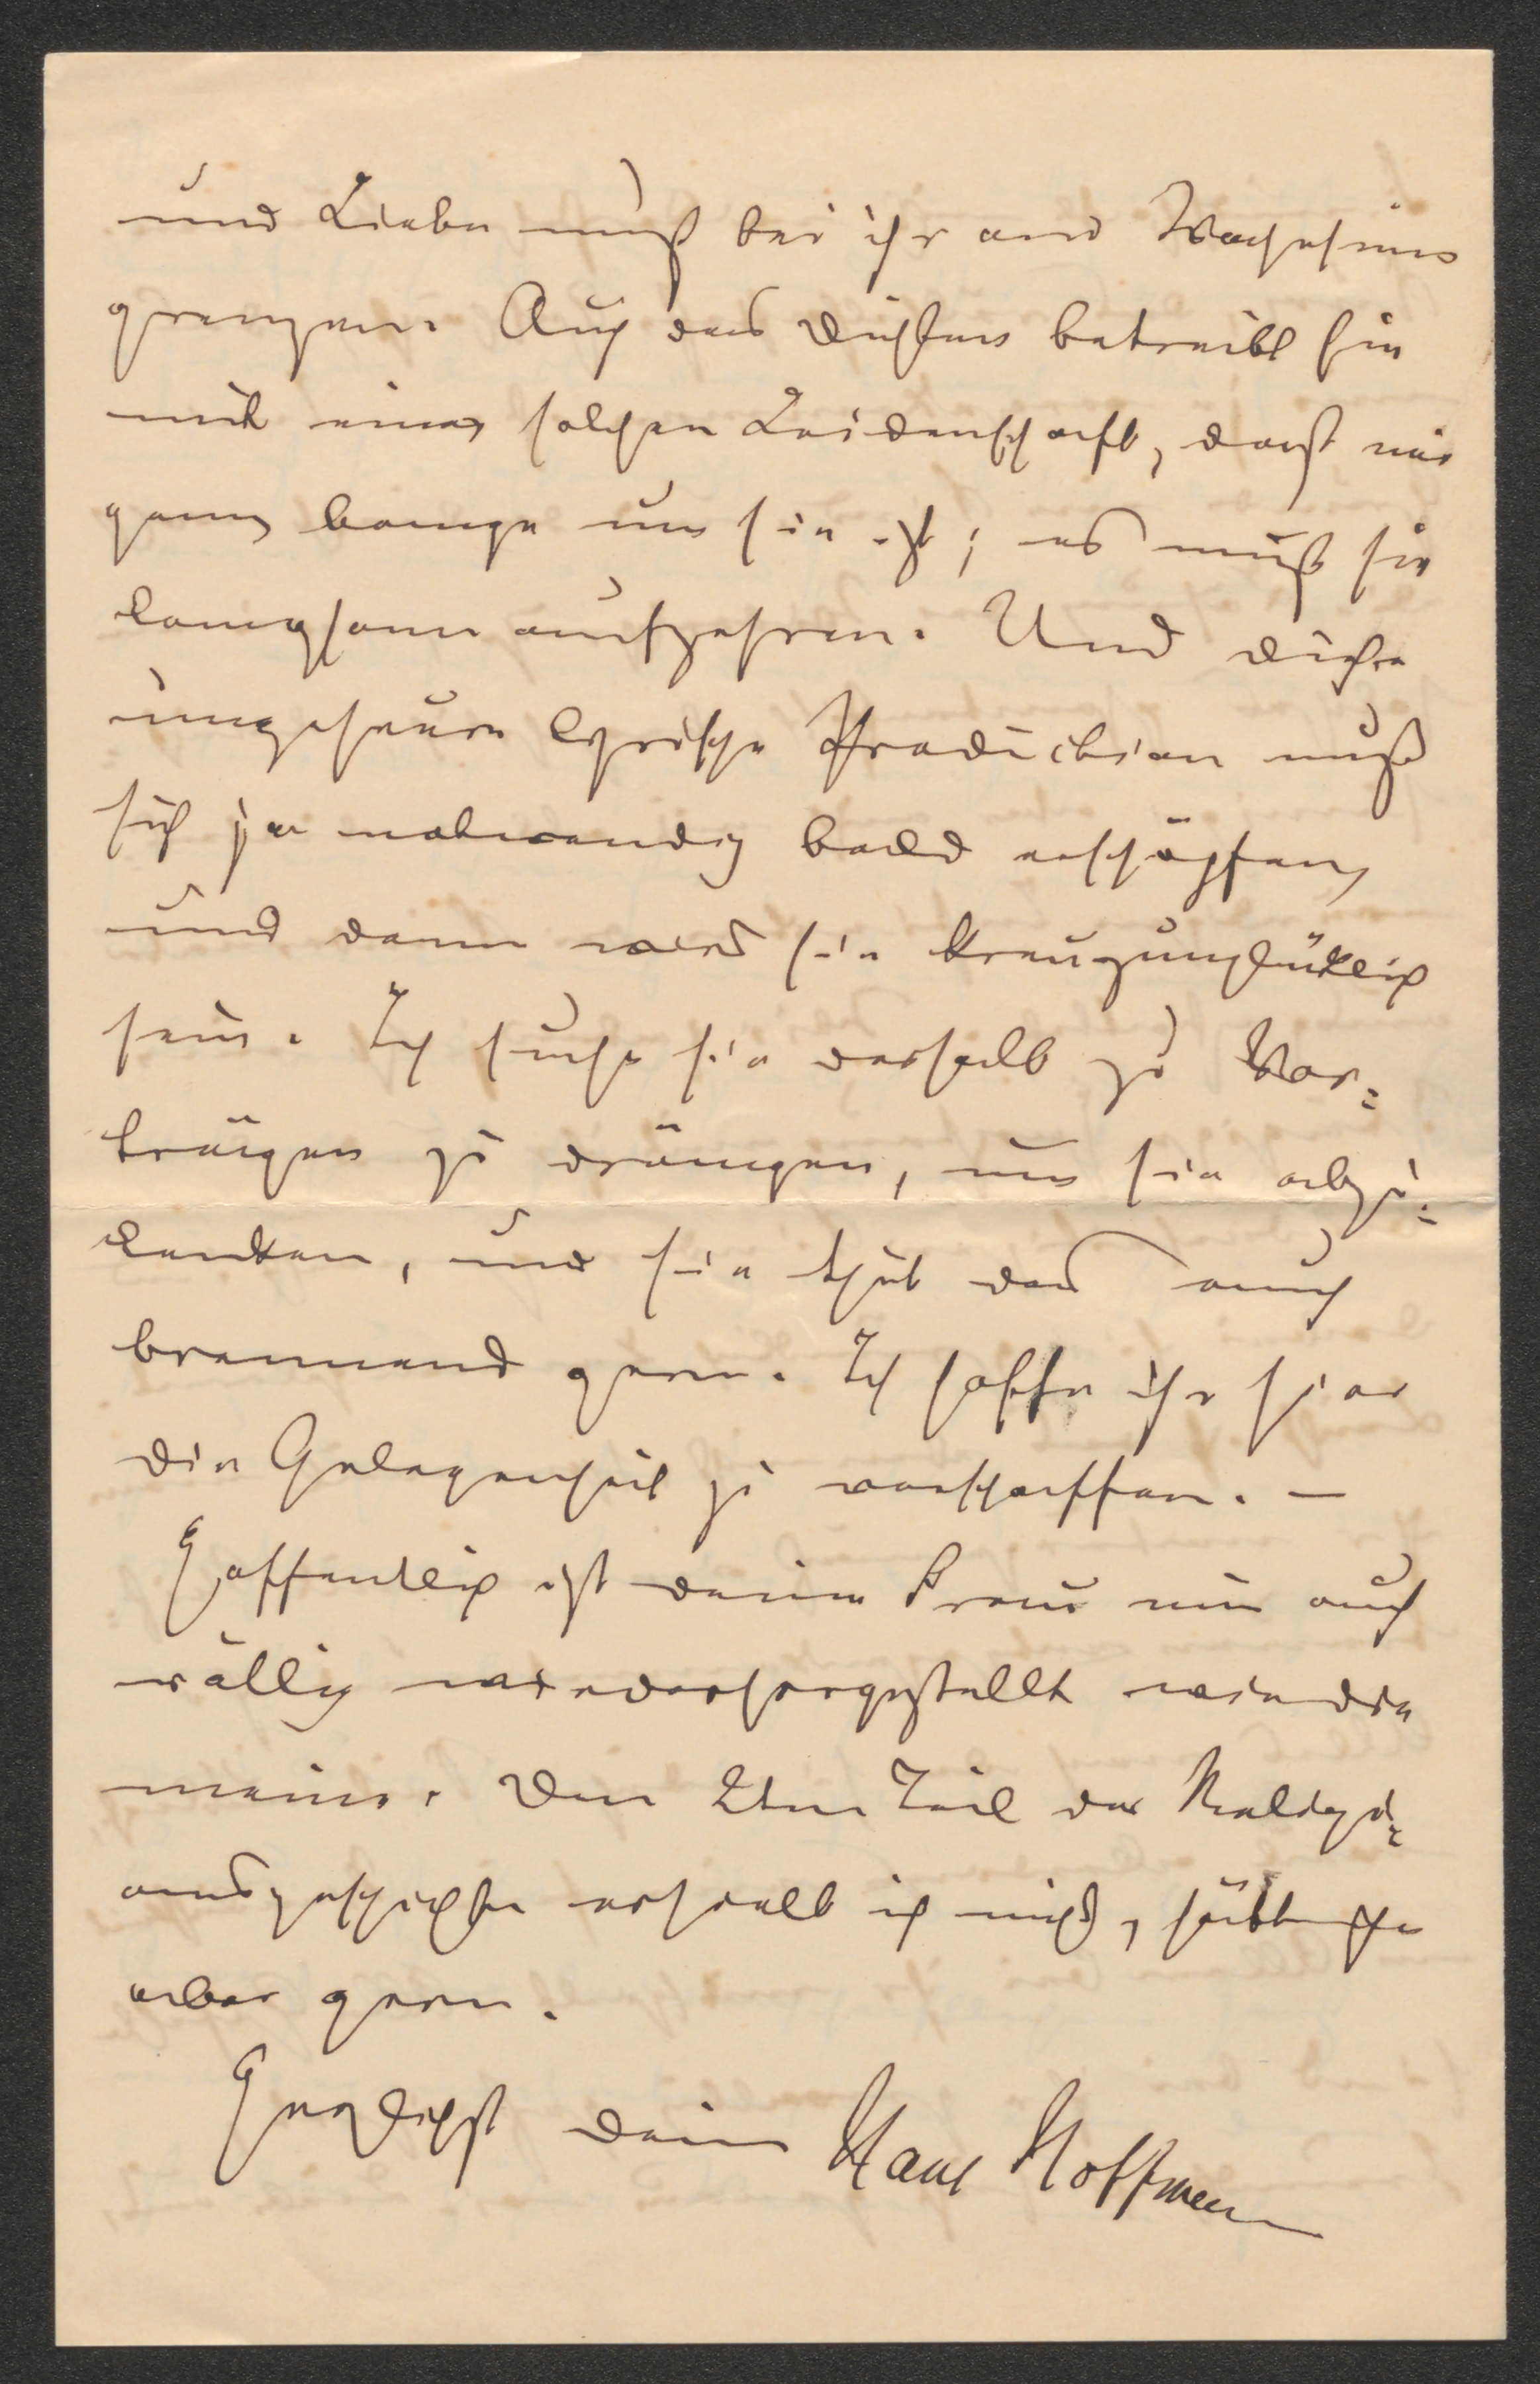 und Liebe muß bei ihr an Wahnsinn
grenzen. Auch das Dichten betreibt sie
mit einer solchen Leidenschaft, daß mir
ganz bange um sie ist; es muß sie
langsam aufzehren. Und diese
ungeheure lyrische Production muß
sich ja notwendig bald erschöpfen,
und dann wird sie kreuzunglücklich
sein. Ich suche sie deshalb zu Vor-
trägen zu drängen, um sie abzu-
lenken, und sie thut das auch
brennend gern. Ich hoffe ihr hier
die Gelegenheit zu verschaffen. —
Hoffentlich ist deine Frau nun auch
völlig wiederhergestellt wie die
meine. Den 2ten Teil der
erhielt ich nicht, hätt ihn
aber gern.
Herzlichst dein Hans Hoffmann